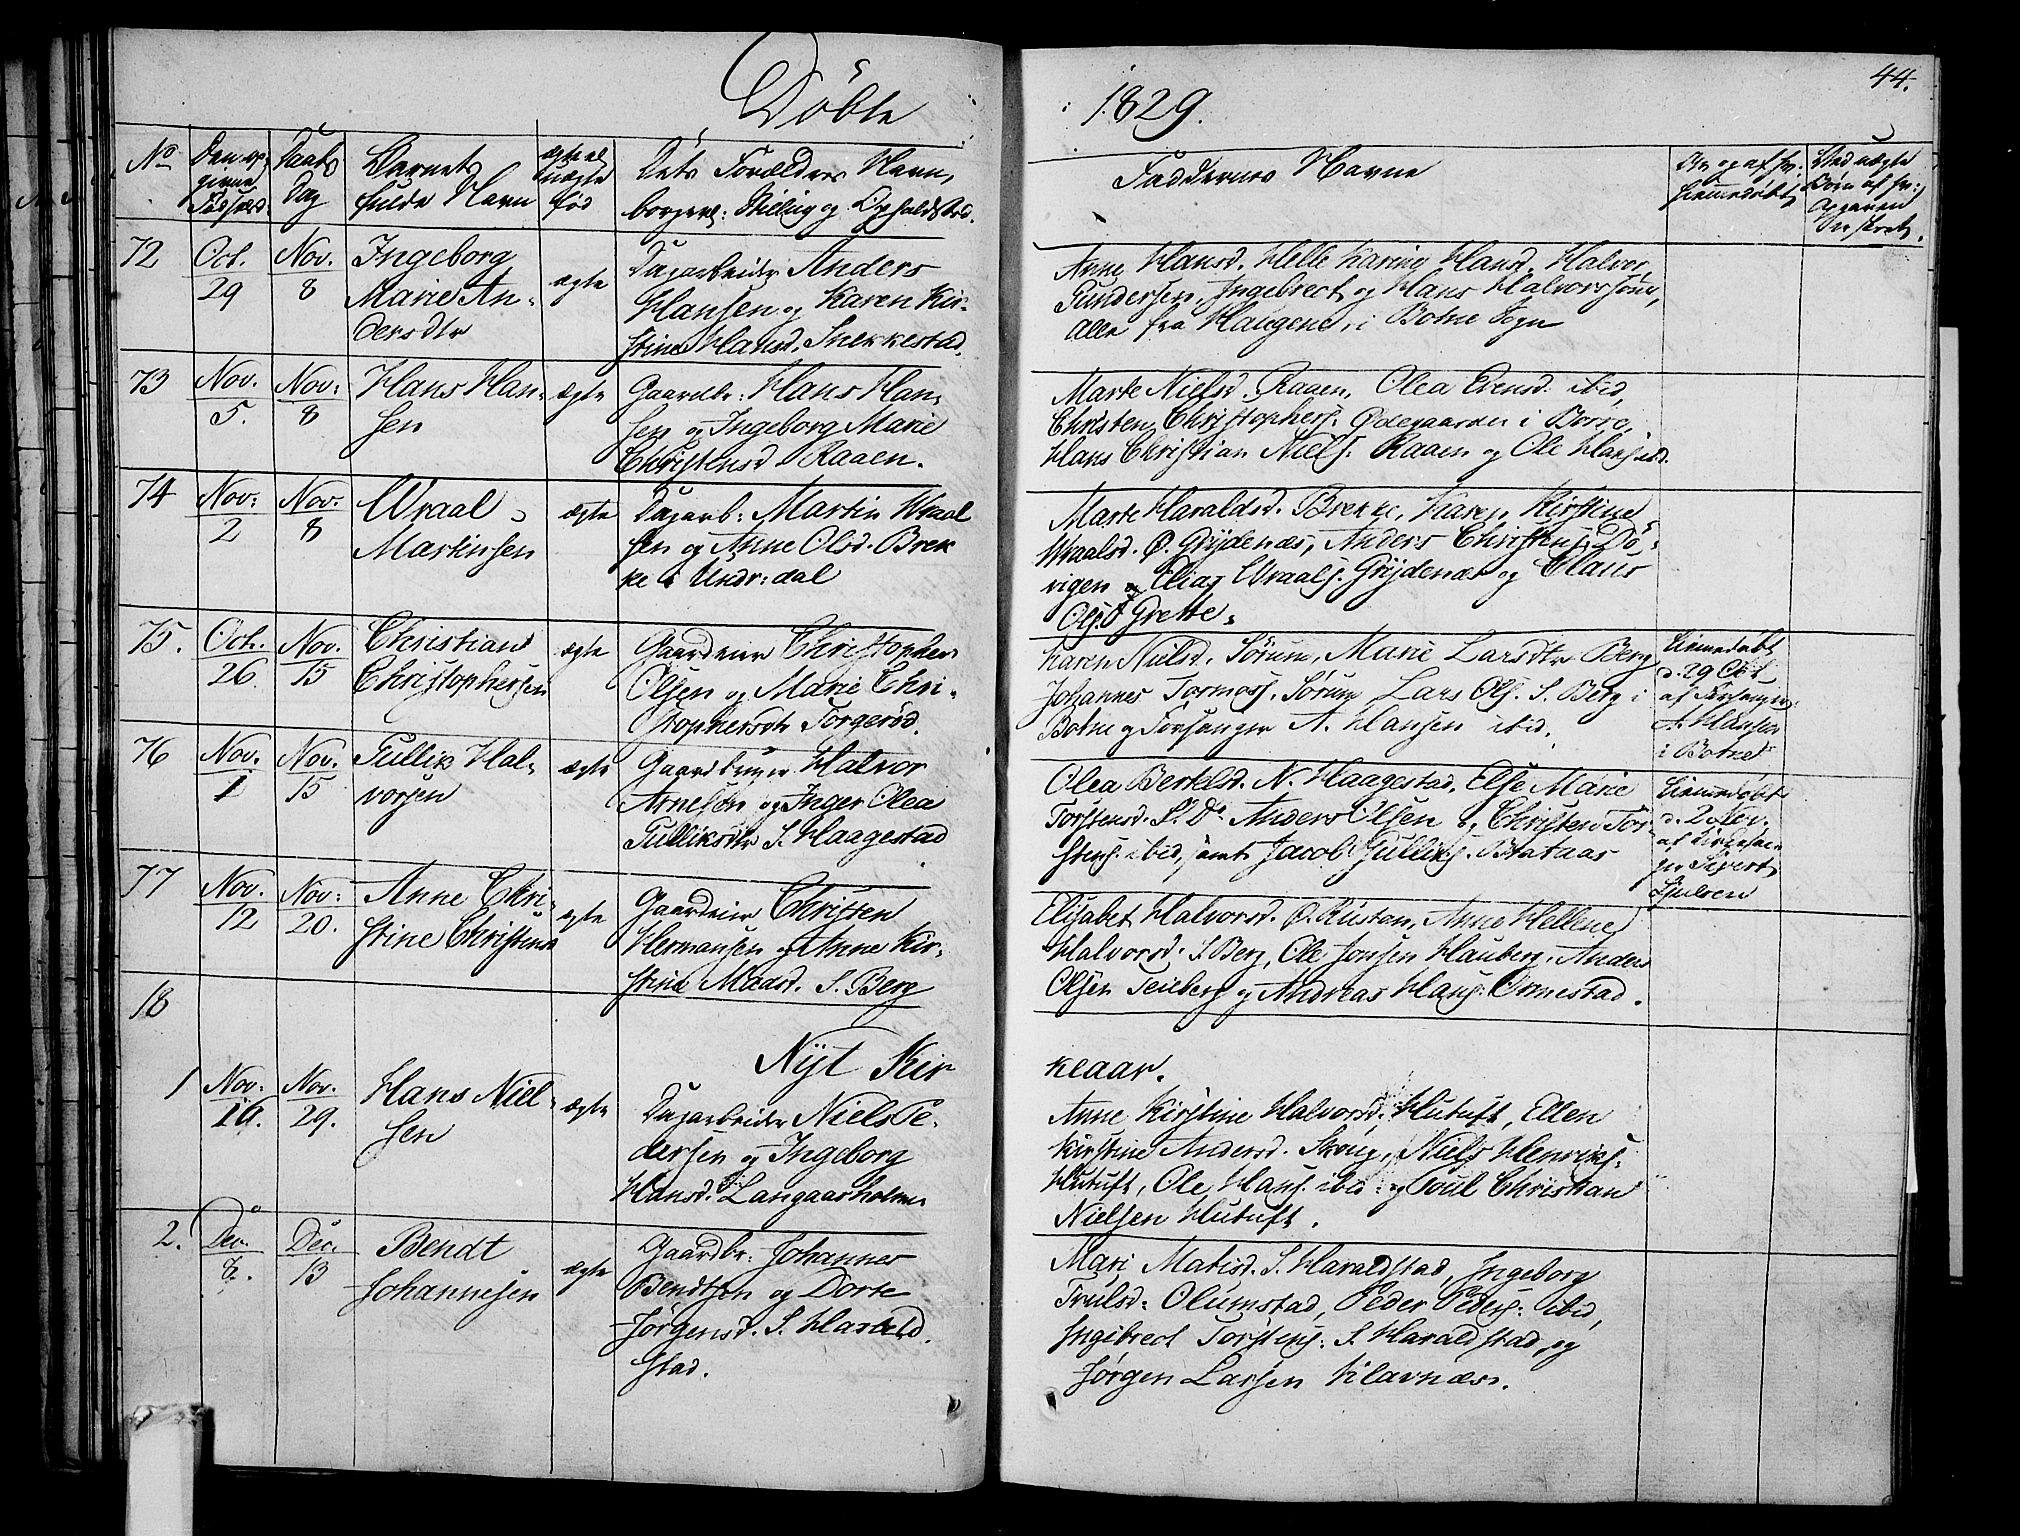 Döbte
1829.
44.
No
Den op-
givne
Daabs
Dag
Barnets
fulde Navn
ægte el
uægte
fød
Dets Forældres Navn,
borgerl: Stilling og Opholdsted.
Faddernes Navne
Om og af hv:
hiemmedøbt
Ved uægte
Børn af hv:
72
Oct. 29
Nov. 8
Ingeborg
Marie An-
dersdtr
ægte
Dagarbeider Anders
Hansen og Karen Kir-
stine Hansd. Snekkestad.
Anne Hansd. Helle Karine Hansd. Halvor
Gundersen, Ingebrect og Hans Halvorssönner,
alle fra Haugene, i Botne Sogn
73
Nov. 5.
Nov: 8
Hans Han-
sen
ægte
Gaardbr: Hans Han-
sen og Ingeborg Marie
Christensd. Raaen.
Marte Nielsd. Raaen, Olea Evensd. ibid,
Christen Christophers. Ødegaarden i Borre,
Hans Christian Niels. Raaen og Ole Hans. ibid.
74
Nov: 2
Nov: 8
Wraal
Martinsen
ægte
Dagarb: Martin Wraal
sen og Anne Olsd. Brek
ke i Undr:dal
Marte Haraldsd. Brekke, Karen Kirstine
Wraalsd. Ø. Grydenæs, Anders Christens. Dö-
vigen og Elias Wraals. Grydenæs og Claus
Ols. Grette.
75.
Oct. 26
Nov. 15
Christian
Christophersen
ægte
Gaardeier Christopher
Olsen og Marie Chri-
stophersdtr Torgeröd.
Karen Nielsd. Sörum, Marie Larsdtr Berg
Johannes Tormoss. Sörum, Lars Ols. S. Berg i
Botne og Forsanger A. Hansen ibid.
Hiemmedøbt
d. 29 Oct
af Forsanger
A. Hansen
i Botne
76
Nov. 1
Nov. 15
Gullik Hal-
vorsen
ægte
Gaardbruger Halvor
Arnesen og Inger Olea
Gulliksdtr S. Haagestad
Olea Bertelsd. N. Haagestad, Else Marie
Torstensd. S. Do Anders Olsen og Christen Tor-
stens. ibid, samt Jacob Gulliks. Bataas
Hiemmedøbt
d. 2 Nov.
af Kirkesan-
ger Sivert
77
Nov. 12
Nov: 20.
Anne Chri-
stine Christensd
ægte
Gaardeier Christen
Hermansen og Anne Kir-
stine Maasd. S. Berg
Elisabet Halvorsd. Ø. Rustan, Anne Hellene
Halvorsd. S. Berg, Ole Jonsen Hauberg, Anders
Olsen Teieberg og Andreas Hans. Ormestad.
18
Nÿt Kir
keaar.
1
Nov: 19.
Nov. 29.
Hans Niel-
sen
ægte
Dagarbeider Niels Pe-
dersen og Ingeborg
Hansd. Langaarholmen
Anne Kirstine Halvorsd. Hutuft, Ellen
Kirstine Andersd. Skoug, Niels Henriks.
Hutuft, Ole Hans. ibid: og Poul Christian
Nielsen Hutuft.
2.
Dec. 8.
Dec. 13
Bendt
Johannesen
ægte
Gaardbr: Johannes
Bendtsen og Dorte
Jörgensd. S. Harald
stad.
Mari Matisd. S. Haraldstad, Ingeborg
Trulsd: Olumstad, Peder Peders: ibid,
Ingebrect Torstens: S. Haraldstad, og
Jörgen Larsen Klavnæs.